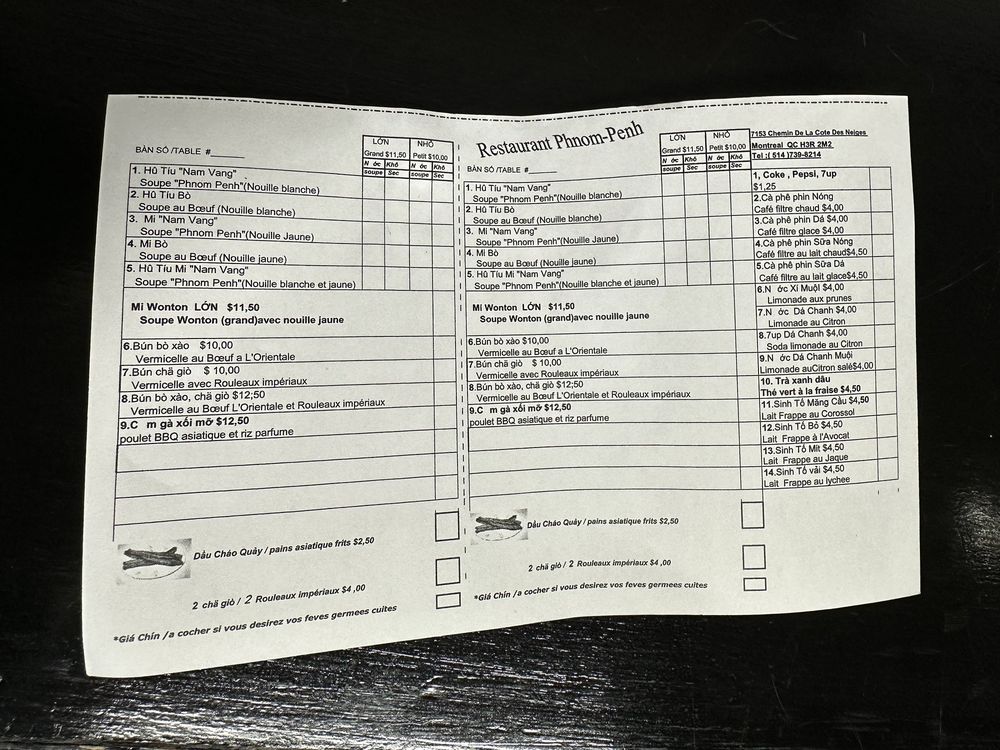 BÀN SỐ /TABLE #______
LỚN
NHỎ
Grand $11,50
Petit $10,00
N ớc
Khô
N ớc
Khô
soupe
Sec
soupe
Sec
1. Hũ Tíu "Nam Vang"
Soupe "Phnom Penh"(Nouille blanche)
2. Hũ Tíu Bò
Soupe au Bœuf (Nouille blanche)
3. Mi "Nam Vang"
Soupe "Phnom Penh"(Nouille Jaune)
4. Mi Bò
Soupe au Bœuf (Nouille jaune)
5. Hũ Tíu Mi "Nam Vang"
Soupe "Phnom Penh"(Nouille blanche et jaune)
Mi Wonton LỚN $11,50
Soupe Wonton (grand)avec nouille jaune
6.Bún bò xào $10,00
Vermicelle au Bœuf a L'Orientale
7.Bún chã giò $ 10,00
Vermicelle avec Rouleaux impériaux
8.Bún bò xào, chã giò $12;50
Vermicelle au Bœuf L'Orientale et Rouleaux impériaux
9.C m gà xối mỡ $12,50
poulet BBQ asiatique et riz parfume
Dầu Cháo Quảy / pains asiatique frits $2,50
2 chã giò / 2 Rouleaux impériaux $4 ,00
*Giá Chín /a cocher si vous desirez vos feves germees cuites
Restaurant Phnom-Penh
BÀN SỐ /TABLE #______
LỚN
NHỎ
Grand $11,50
Petit $10,00
N ớc
Khô
N ớc
Khô
soupe
Sec
soupe
Sec
1. Hũ Tíu "Nam Vang"
Soupe "Phnom Penh"(Nouille blanche)
2. Hũ Tíu Bò
Soupe au Bœuf (Nouille blanche)
3. Mi "Nam Vang"
Soupe "Phnom Penh"(Nouille Jaune)
4. Mi Bò
Soupe au Bœuf (Nouille jaune)
5. Hũ Tíu Mi "Nam Vang"
Soupe "Phnom Penh"(Nouille blanche et jaune)
Mi Wonton LỚN $11,50
Soupe Wonton (grand)avec nouille jaune
6.Bún bò xào $10,00
Vermicelle au Bœuf a L'Orientale
7.Bún chã giò $ 10,00
Vermicelle avec Rouleaux impériaux
8.Bún bò xào, chã giò $12;50
Vermicelle au Bœuf L'Orientale et Rouleaux impériaux
9.C m gà xối mỡ $12,50
poulet BBQ asiatique et riz parfume
Dầu Cháo Quảy / pains asiatique frits $2,50
2 chã giò / 2 Rouleaux impériaux $4 ,00
*Giá Chín /a cocher si vous desirez vos feves germees cuites
7153 Chemin De La Cote Des Neiges
Montreal QC H3R 2M2
Tel :( 514 )739-8214
1, Coke , Pepsi, 7up
$1,25
2.Cà phê phin Nóng
Café filtre chaud $4,00
3.Cà phê phin Dá $4,00
Café filtre glace $4,00
4.Cà phê phin Sữa Nóng
Café filtre au lait chaud$4,50
5.Cà phê phin Sữa Dá
Café filtre au lait glace$4,50
6.N ớc Xí Muội $4,00
Limonade aux prunes
7.N ớc Dá Chanh $4,00
Limonade au Citron
8.7up Dá Chanh $4,00
Soda limonade au Citron
9.N ớc Dá Chanh Muối
Limonade auCitron salé$4,00
10. Trà xanh dâu
Thé vert à la fraise $4,50
11.Sinh Tố Mãng Cầu $4,50
Lait Frappe au Corossol
12.Sinh Tố Bỏ $4,50
Lait Frappe à l'Avocat
13.Sinh Tố Mít $4,50
Lait Frappe au Jaque
14.Sinh Tố vải $4,50
Lait Frappe au lychee